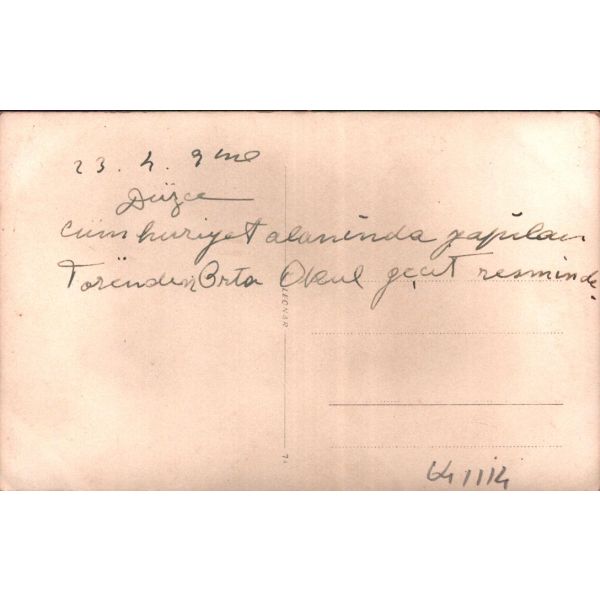 23. 4. 9
Düzce
Cumhuriyet alanında yapılan
Törenden Orta Okul geçit resminde.
LEONAR
641114